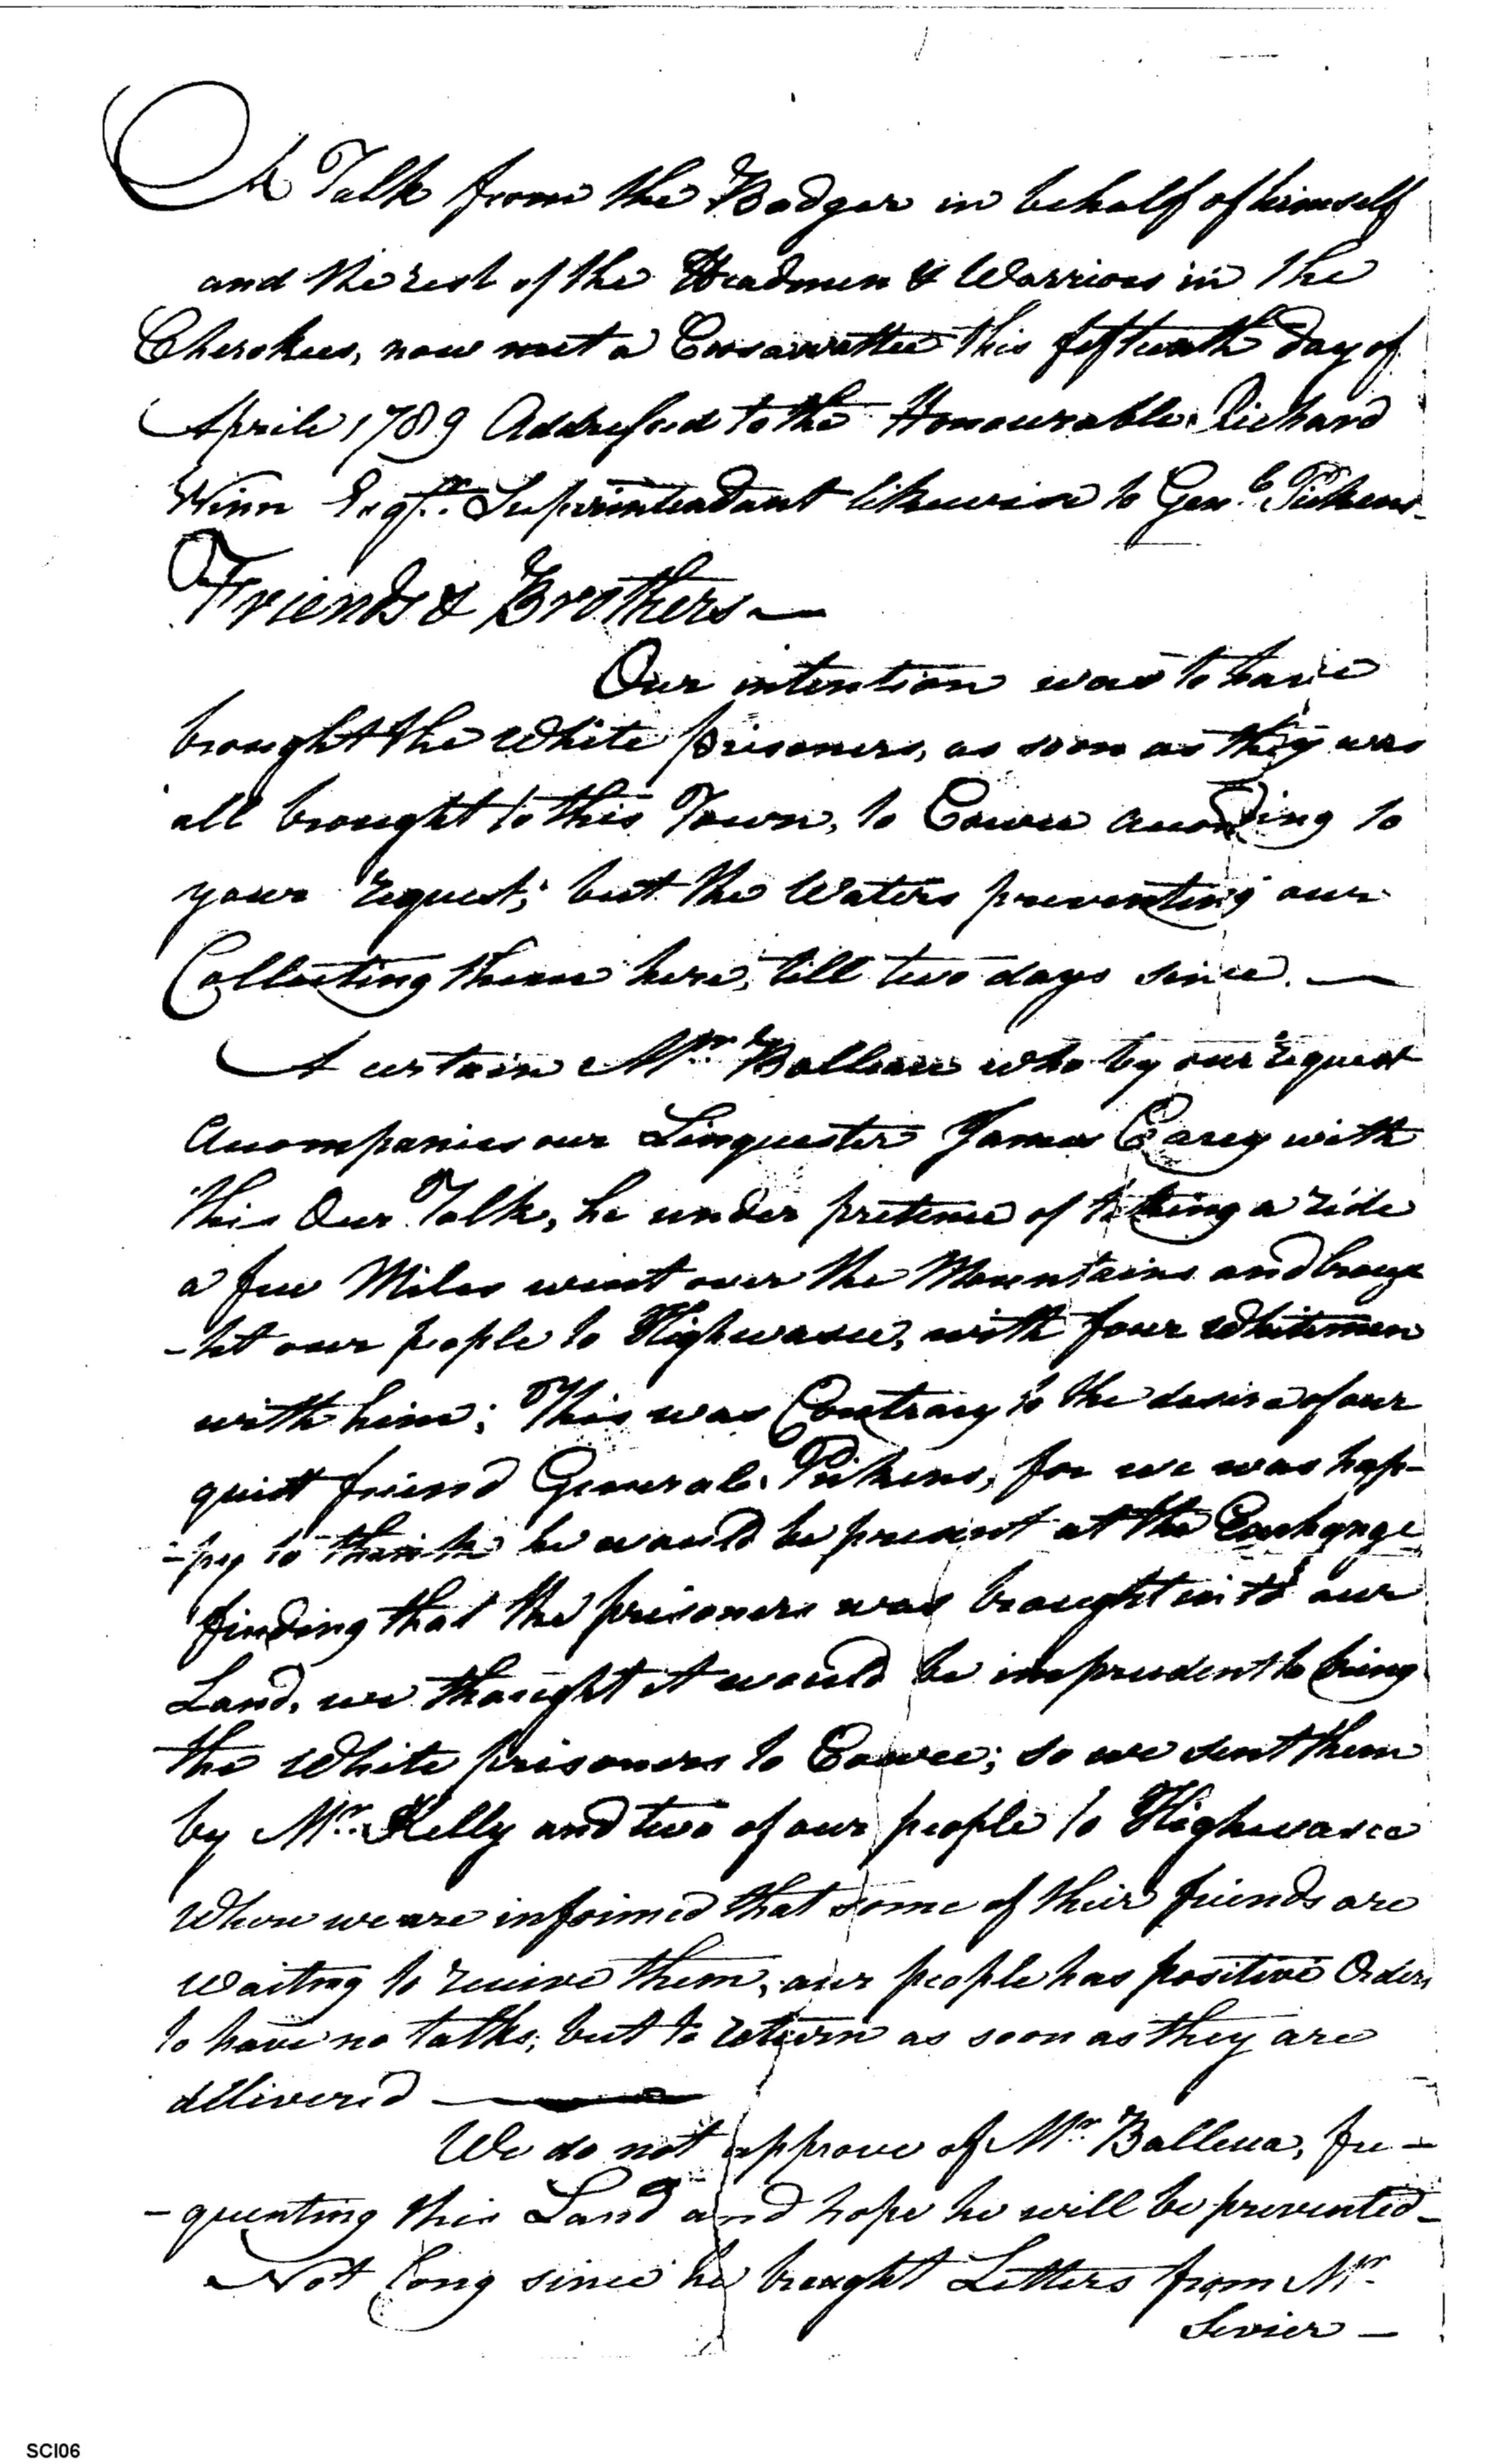 A Talk from the Badger in behalf of himself
and the rest of the Headmen & Warriors in the
Cherokees, now met a Coosawattee this fifteenth day of
Aprile 1789 Addressed to the Honourable Richard
Winn Esqr. Superintendant likewise to Genl. Pickens
Friends & Brothers —
Our intention was to have
brought the White prisoners, as soon as they was
all brought to this Town, to Cowee according to
your request; but the Waters preventing our
Collecting them here, till two days since. —
A certain Mr. Ballieu who by our request
accompanies our Linquester James Carey with
this Our Talk, he under pretence of taking a ride
a few Miles went over the Mountains and broug
-ht our people to Highwasee, with four Whitemen
with him; This was Contrary to the desire of our
friend General Pickens, for we was hap-
-py to think he would be present at the Exchange
finding that the prisoners was brought into our
Land, we thought it would be imprudent to bring
the White prisoners to Cowee; so we sent them
by Mr. Kelly and two of our people to Highwasee
Where we are informed that some of their friends are
waiting to receive them, our people has positive Orders
to have no talks, but to return as soon as they are
dilivered —
We do not approve of Mr. Balleua, fre -
- quenting this Land and hope he will be prevented -
Not long since he brought Letters from Mr.
Sevier —
SCI06